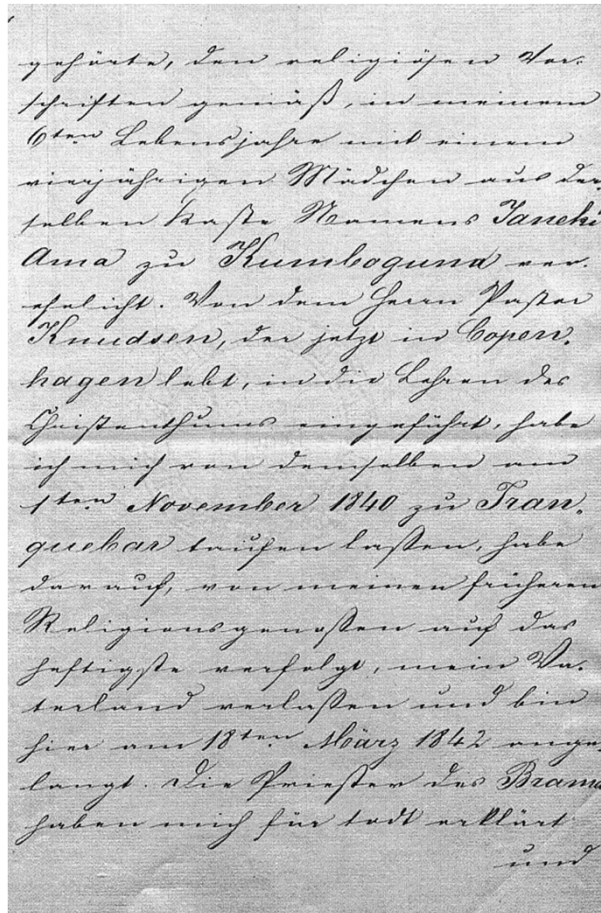 gehörte, den religiösen Vor-
schriften gemäß, in meinem
6ten Lebensjahre mit einem
vierjährigen Mädchen aus der-
selben Kaste Namens Janeki
Ama zu Kumbogund ver-
ehelicht. Von dem Herrn Pastor
Knudsen, der jetzt in Copen-
hagen lebt, in die Lehren des
Christenthums eingeführt, habe
ich mich von demselben am
1ten November 1840 zu Tran-
quebar taufen laßen, habe
darauf, von meinen früheren
Religionsgenoßen auf das
heftigste verfolgt, mein Va-
terland verlaßen und bin
hier am 18ten März 1842 ange-
langt. Die Priester des Brama
haben mich für todt erklärt
und